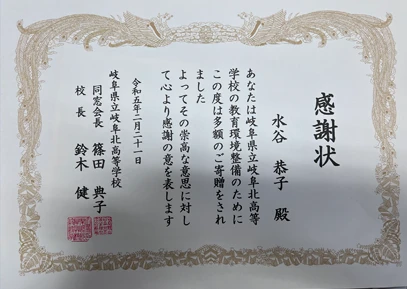 感謝状
水谷 恭子 殿
あなたは岐阜県立岐阜北高等
学校の教育環境整備のために
この度は多額のご寄贈をされ
ました
よってその崇高な意思に対し
て心より感謝の意を表します
令和五年二月二十一日
岐阜県立岐阜北高等学校
同窓会長 篠田 典子
校長 鈴木 健